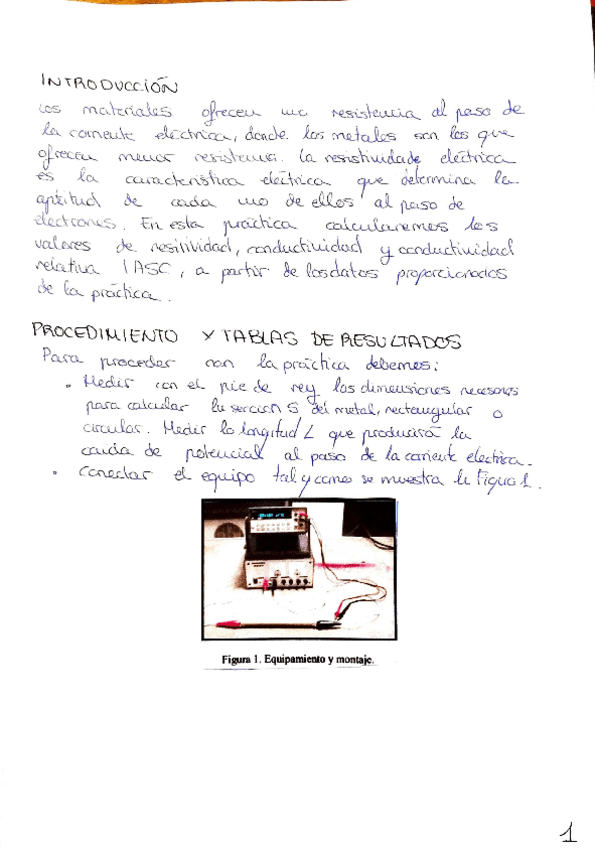 INTRODUCCIÓN
Los materiales ofrecen una resistencia al paso de
la corriente eléctrica, donde los metales son los que
ofrecen menor resistencia. La resistividade eléctrica
es la característica eléctrica que determina la
aptitud de cada uno de ellos al paso de
electrones. En esta práctica calcularemos los
valores de resitividad, conductividad y conductividad
relativa IASC, a partir de los datos proporcionados
de la práctica.
PROCEDIMIENTO Y TABLAS DE RESULTADOS
Para proceder con la práctica debemos:
• Medir con el pie de rey las dimensiones necesarias
para calcular la sección S del metal, rectangular o
circular. Medir la longitud L que producirá la
caída de potencial al paso de la corriente electrica.
• Conectar el equipo tal y como se muestra la Figura 1.
Figura 1. Equipamiento y montaje.
1